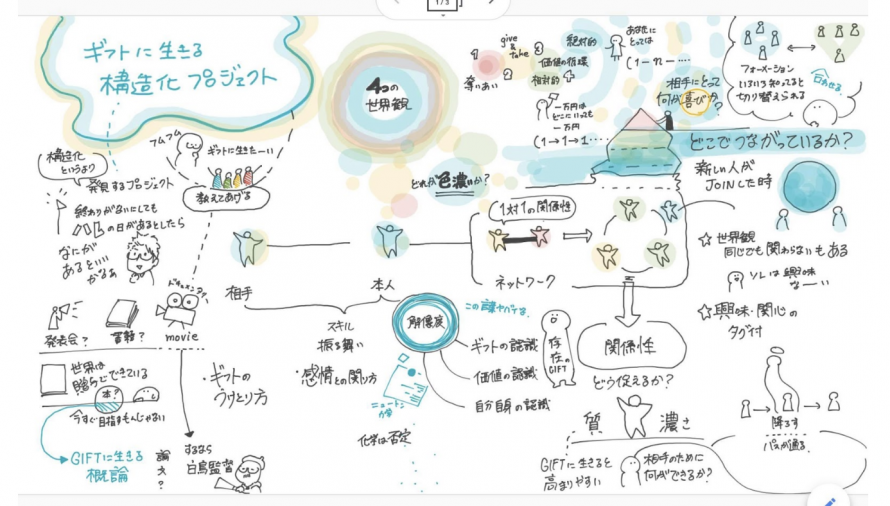 1/3
ギフトに生きる
構造化プロジェクト
構造化
というより
発見するプロジェクト
終わりがないにしても
の日があるとしたら
なにが
あるといい
かなぁ
フムフム
ギフトに生きたーい
教えてあげる
発表会?
書籍?
movie
世界は
贈与でできている
本?
今すぐ目指すもんじゃない
GIFTに生きる
概論
論文?
するなら
白鳥監督
・ギフトの
うけとり方
4つの
世界観
give
&
take
奪いあい
絶対的
価値の循環
相対的
一万円は
どこにいっても
一万円
(1→1→1…
あなたに
とっては
相手にとって
何が喜びか?
フォーメーション
いろいろ知ってると
切り替えられる
合わせる
どれが色濃いか?
どこでつながっているか?
相手
本人
スキル
振る舞い
・感情との関り方
1対1の関係性
ネットワーク
解像度
ニュートン
力学
化学は否定
ギフトの認識
価値の認識
自分自身の認識
存在のGIFT
関係性
どう捉えるか?
質
濃さ
GIFTに生きると
高まりやすい
相手のために
何ができるか?
新しい人が
JOINした時
☆世界観
同じでも関わらないもある
ソレは興味
なーい
☆興味・関心の
タグ付
降ろす
パスが通る